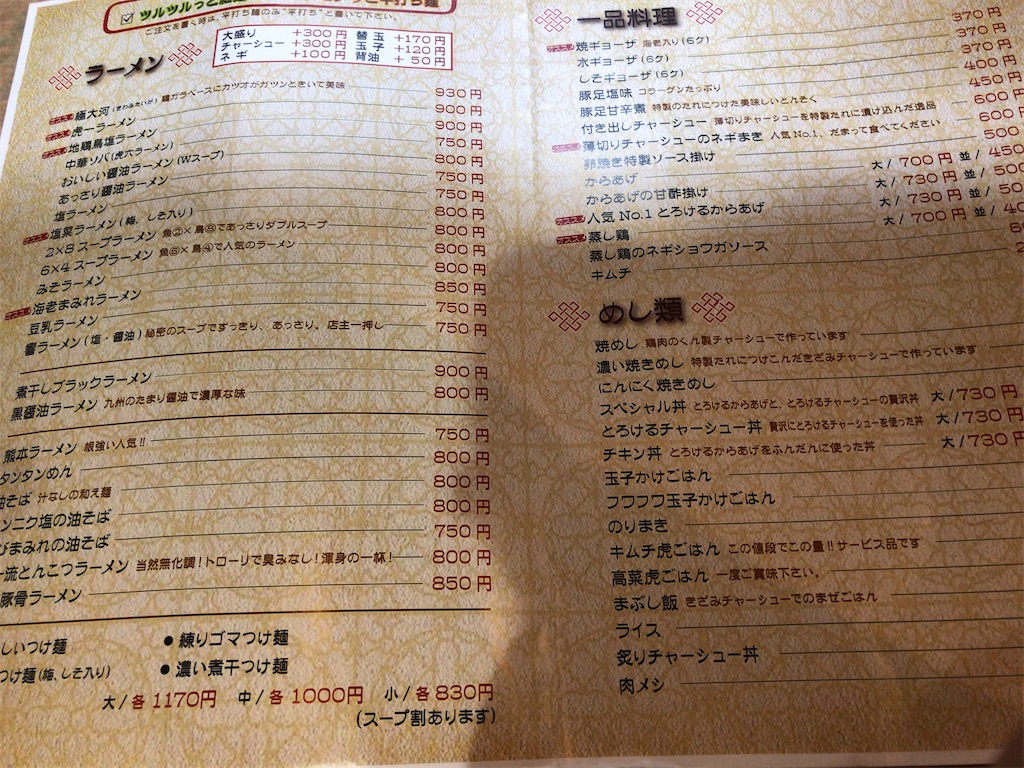 ツルツルっと
平打ち麺
ご注文を書く時は、平打ち麺のみ“平打ち”と書いて下さい。
大盛り +300円 替玉 +170円
チャーシュー +300円 玉子 +120円
ネギ +100円 背油 + 50円
ラーメン
オススメ 極大河(きわみたいが) 鶏ガラベースにカツオがガツンときいて美味 930円
オススメ 虎一ラーメン 900円
オススメ 地鶏鳥塩ラーメン 900円
中華ソバ(虎六ラーメン) 750円
おいしい醤油ラーメン(Wスープ) 800円
あっさり醤油ラーメン 750円
塩ラーメン 750円
オススメ 塩菜ラーメン(梅、しそ入り) 800円
2×8 スープラーメン 魚②×鳥⑧であっさりダブルスープ 800円
6×4 スープラーメン 魚⑥×鳥④で人気のラーメン 800円
みそラーメン 800円
オススメ 海老まみれラーメン 850円
豆乳ラーメン 750円
響ラーメン(塩・醤油) 秘密のスープですっきり、あっさり。店主一押し 750円
煮干しブラックラーメン 900円
黒醤油ラーメン 九州のたまり醤油で濃厚な味 800円
熊本ラーメン 根強い人気!! 750円
タンタンめん 800円
油そば 汁なしの和え麺 800円
ンニク塩の油そば 800円
びまみれの油そば 750円
一流とんこつラーメン 当然無化調!トローリで臭みなし!渾身の一杯! 800円
豚骨ラーメン 850円
しいつけ麺
●練りゴマつけ麺
つけ麺(梅、しそ入り)
●濃い煮干つけ麺
大/各1170円 中/各1000円 小/各830円
(スープ割あります)
一品料理
オススメ 焼ギョーザ 海老入り(6ケ) 370円
水ギョーザ(6ケ) 370円
しそギョーザ(6ケ) 370円
豚足塩味 コラーゲンたっぷり 400円
豚足甘辛煮 特製のたれにつけた美味しいとんそく 450円
付き出しチャーシュー 薄切りチャーシューを特製たれに漬け込んだ逸品 600円
オススメ 薄切りチャーシューのネギまき 人気No.1、だまって食べてください 600円
卵焼き特製ソース掛け 500
からあげ 大/700円 並/450
からあげの甘酢掛け 大/730円 並/500
オススメ 人気No.1とろけるからあげ 大/730円 並/50
オススメ 蒸し鶏 大/700円 並/40
蒸し鶏のネギショウガソース
キムチ
めし類
焼めし 鶏肉のくん製チャーシューで作っています
濃い焼きめし 特製たれにつけこんだきざみチャーシューで作っています
にんにく焼きめし
スペシャル丼 とろけるからあげと、とろけるチャーシューの贅沢丼 大/730円
とろけるチャーシュー丼 贅沢にとろけるチャーシューを使った丼 大/730円
チキン丼 とろけるからあげをふんだんに使った丼 大/730円
玉子かけごはん
フワフワ玉子かけごはん
のりまき
キムチ虎ごはん この値段でこの量!!サービス品です
高菜虎ごはん 一度ご賞味下さい。
まぶし飯 きざみチャーシューでのまぜごはん
ライス
炙りチャーシュー丼
肉メシ